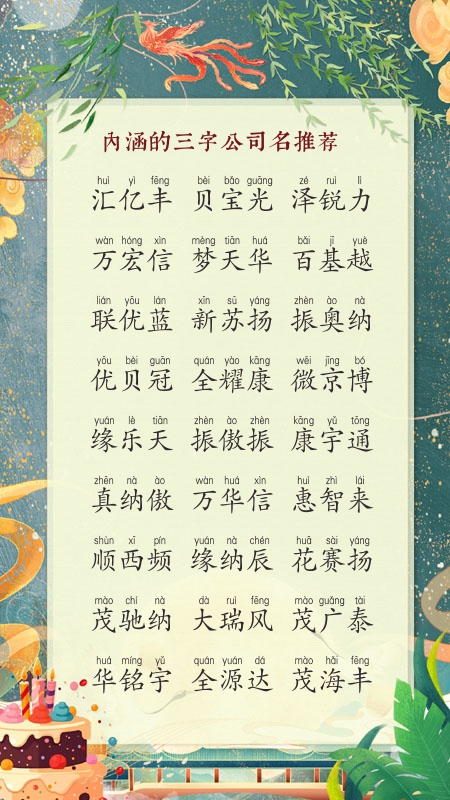 内涵的三字公司名推荐
huì yì fēng bèi bǎo guāng zé ruì lì
汇亿丰 贝宝光 泽锐力
wàn hóng xìn mèng tiān huá bǎi jī yuè
万宏信 梦天华 百基越
lián yōu lán xīn sū yáng zhèn ào nà
联优蓝 新苏扬 振奥纳
yōu bèi guān quán yào kāng wēi jīng bó
优贝冠 全耀康 微京博
yuán lè tiān zhèn ào zhèn kāng yǔ tōng
缘乐天 振傲振 康宇通
zhēn nà ào wàn huá xìn huì zhì lái
真纳傲 万华信 惠智来
shùn xī pín yuán nà chén huā sài yáng
顺西频 缘纳辰 花赛扬
mào chí nà dà ruì fēng mào guǎng tài
茂驰纳 大瑞风 茂广泰
huá míng yǔ quán yuán dá mào hǎi fēng
华铭宇 全源达 茂海丰